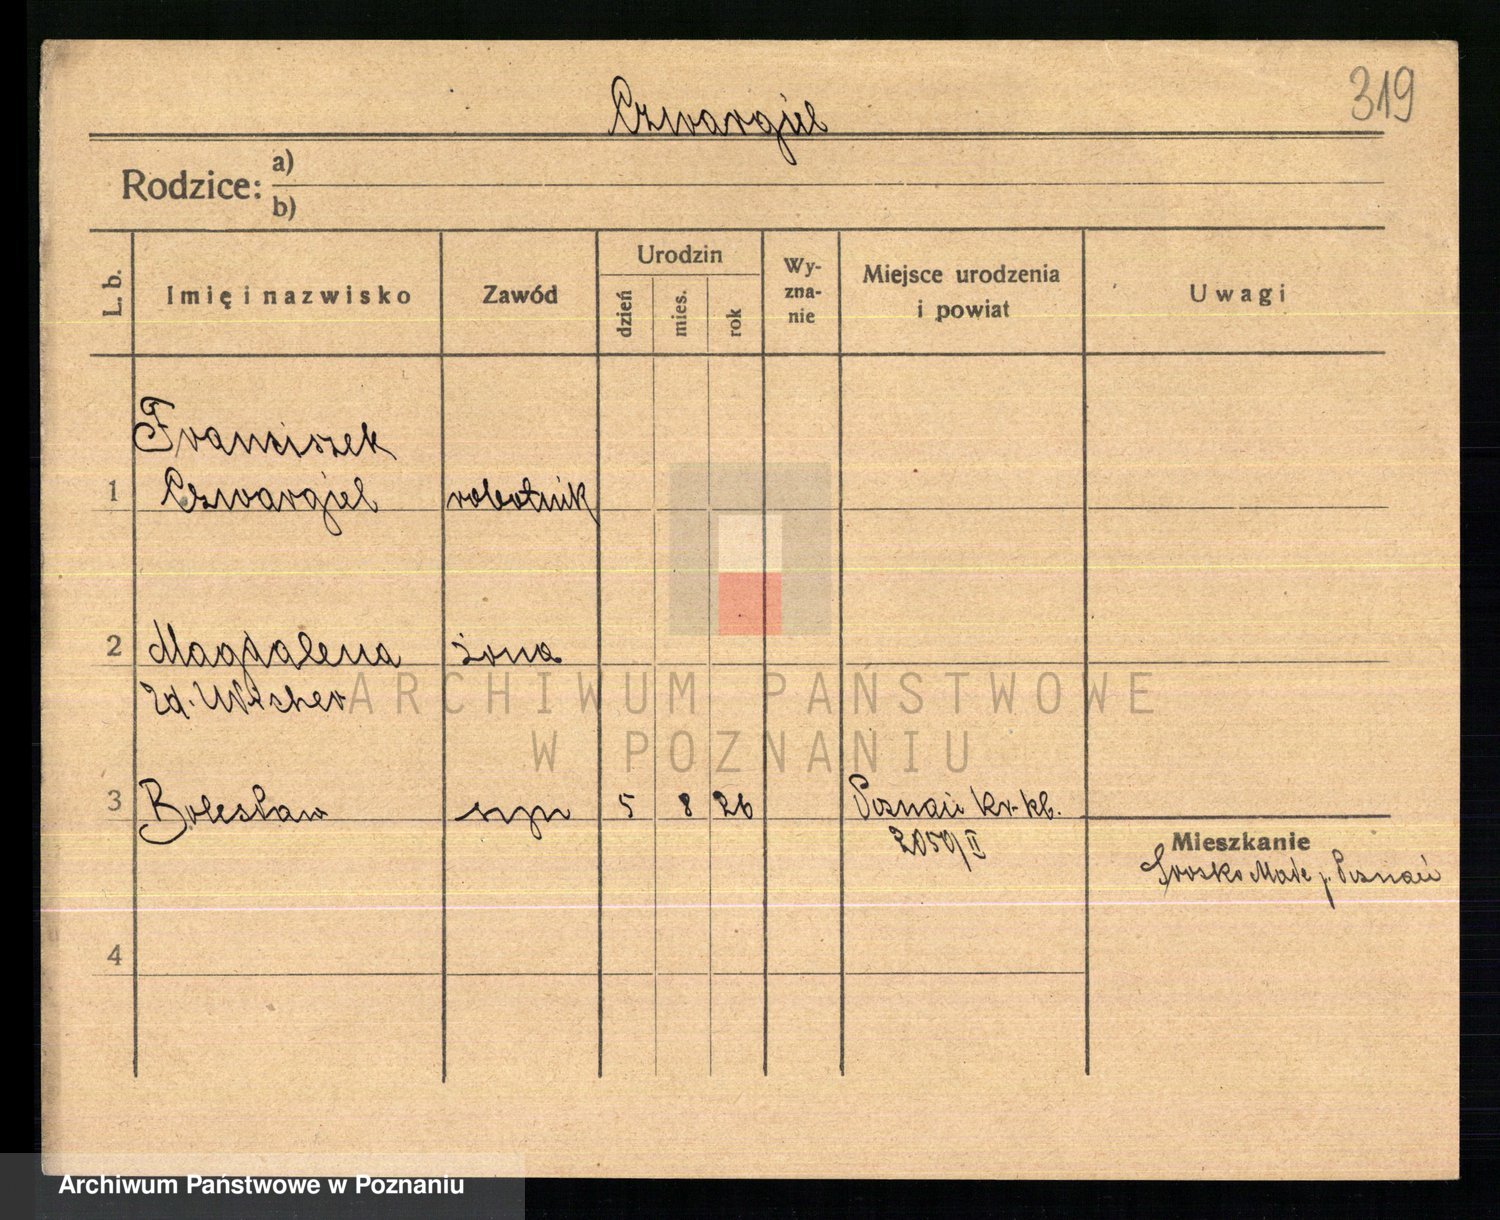 319
Czwargiel
Rodzice: a)
b)
L. b.
Imię i nazwisko
Zawód
Urodzin
dzień
mies.
rok
Wy-
zna-
nie
Miejsce urodzenia
i powiat
Uwagi
Franciszek
1 Czwargiel robotnik
2 Magdalena żona
zd. Wicher
3 Bolesław syn 5 8 26 Poznań kr. kb.
2050/II
Mieszkanie
Srosko Małe p. Poznań
4
ARCHIWUM PAŃSTWOWE
W POZNANIU
Archiwum Państwowe w Poznaniu